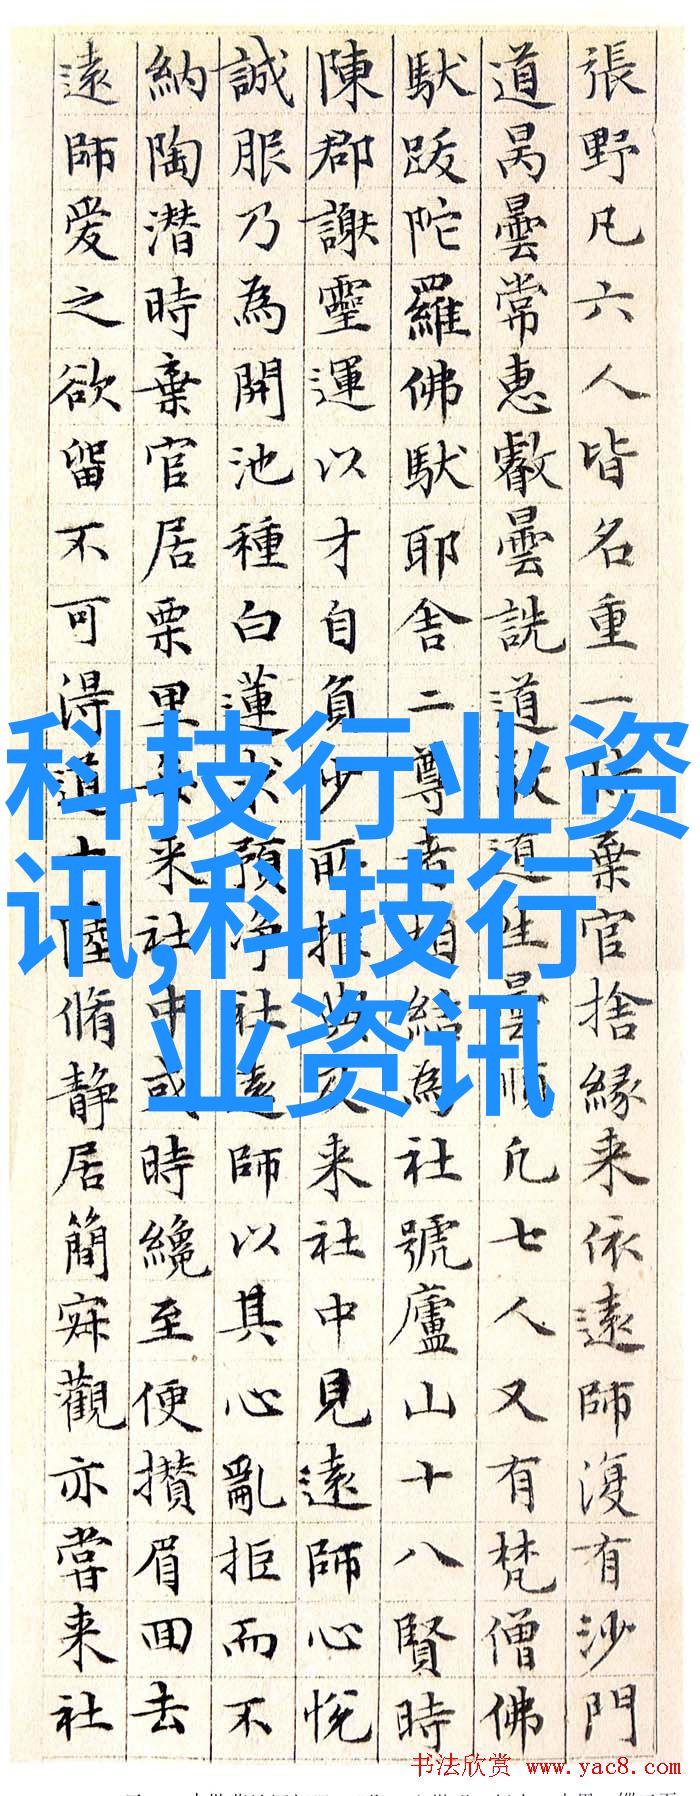 張野凡六人皆名重一時棄官捨緣来依遠師渡有沙門
道昺曇常惠叡曇詵道敬道生曇順凡七人又有梵僧佛
馱跋陀羅佛馱耶舍二尊者相結為社號廬山十八賢時
陳郡謝靈運以才自負少所推與及来社中見遠師心悅
誠服乃為開池種白蓮求預净社遠師以其心亂拒而不
納陶潜時棄官居栗里每来社中或時纔至便攢眉回去
遠師愛之欲留不可得道士陸脩静居簡寂觀亦嘗来社
科技行业资
讯,科技行
业资讯
书法欣赏 www.yac8.com